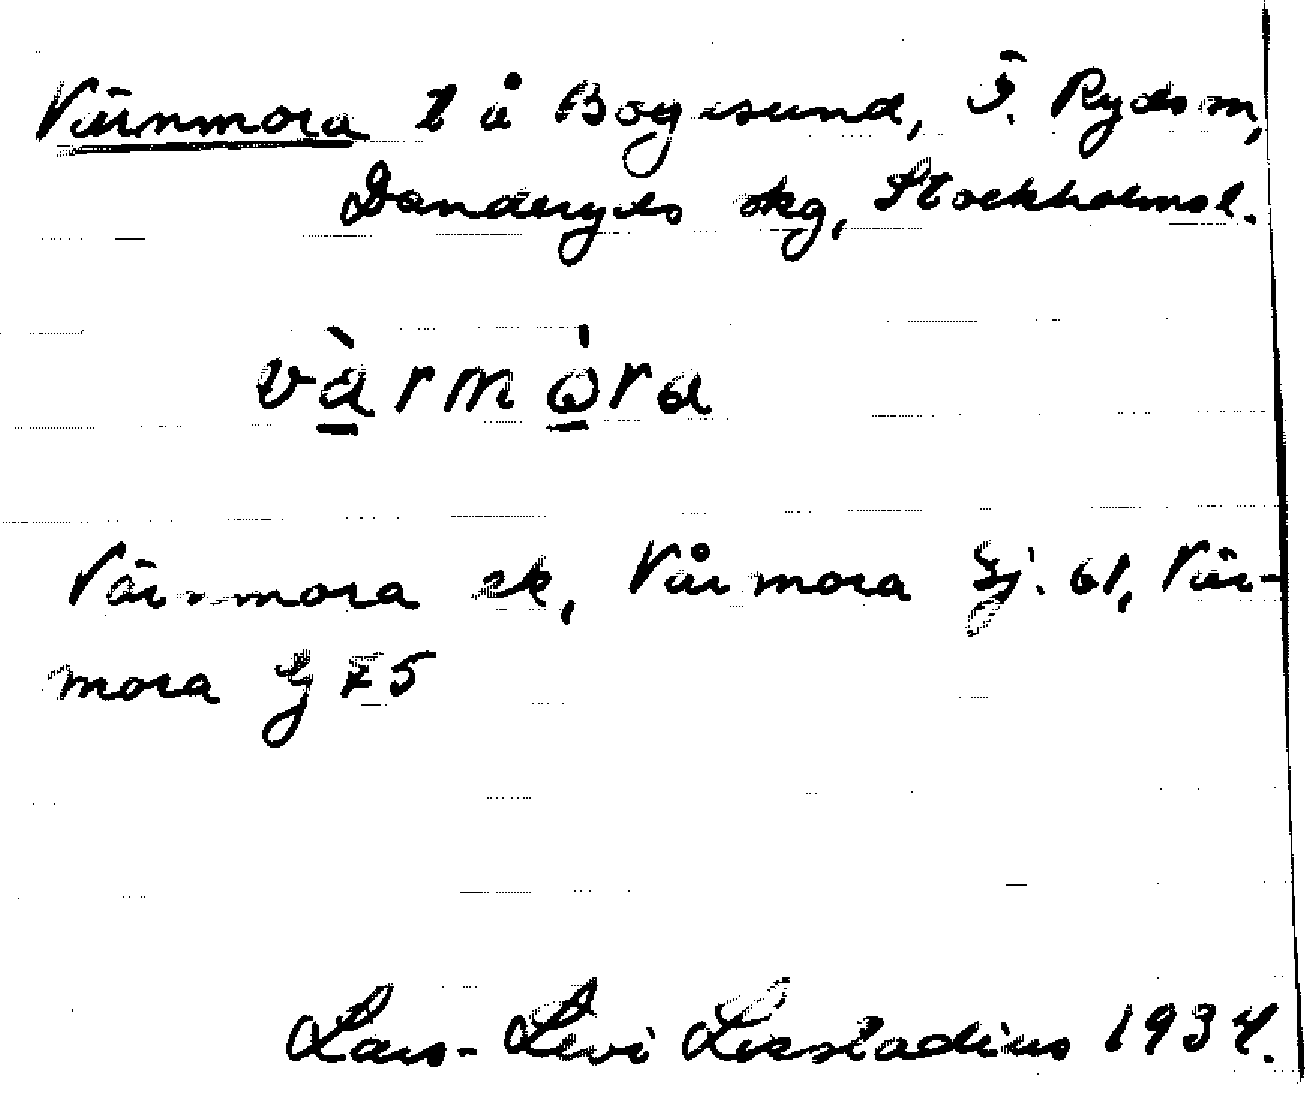 Värnmora t å Bogesund, Ö. Ryds sn,
Danderyds skg, Stockholms l.
vàrmòra
Värnmora ek, Vårmora Gj. 61, Vär-
mora Gj 75
Lars-Levi Læstadius 1934.